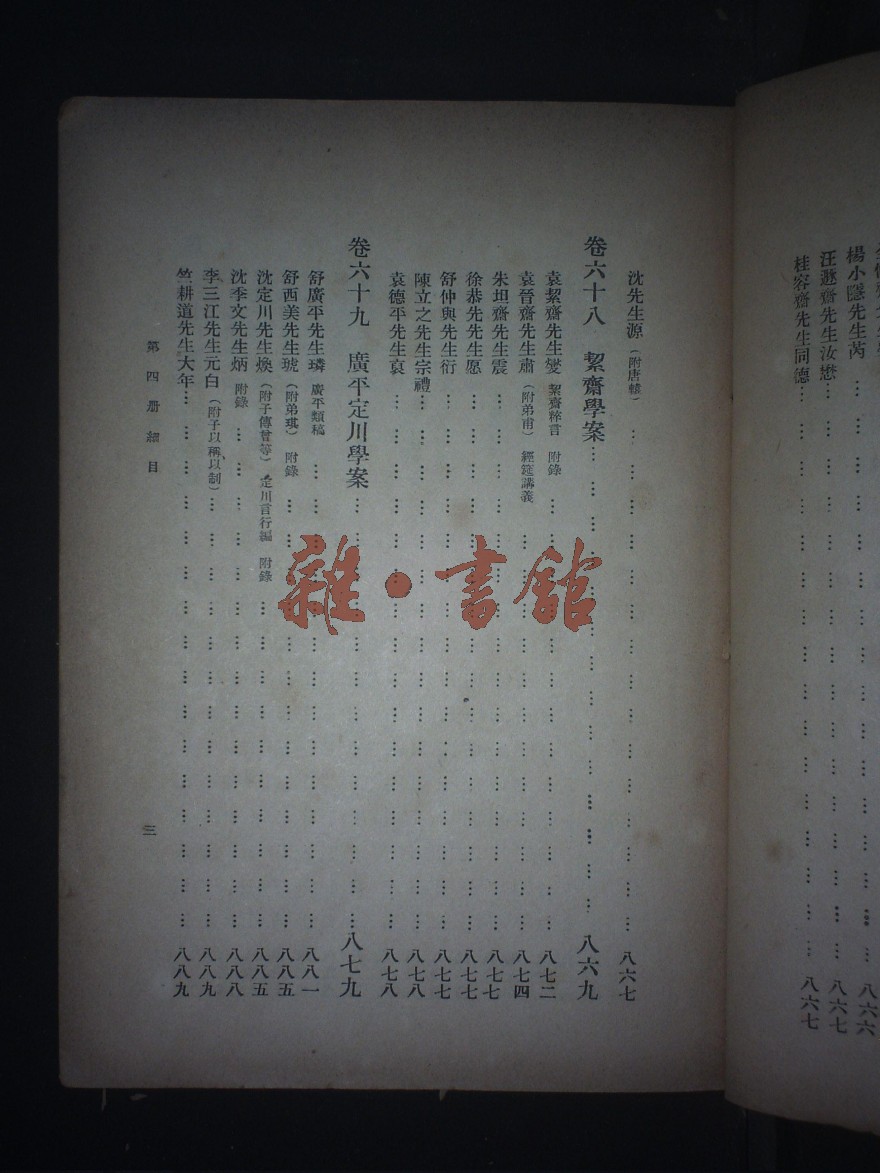 楊小隱先生芮 … 八六六
汪遯齋先生汝懋 … 八六七
桂容齋先生同德 … 八六七
沈先生源（附唐轅） … 八六七
卷六十八 絜齋學案 … 八六九
袁絜齋先生燮 絜齋粹言 附錄 … 八七二
袁晉齋先生肅（附弟甫） 經筵講義 … 八七四
朱坦齋先生震 … 八七七
徐恭先先生愿 … 八七七
舒仲與先生衍 … 八七七
陳立之先生宗禮 … 八七八
袁德平先生裒 … 八七八
卷六十九 廣平定川學案 … 八七九
舒廣平先生璘 廣平類稿 … 八八一
舒西美先生琥（附弟琪） 附錄 … 八八五
沈定川先生煥（附子傳曾等） 定川言行編 附錄 … 八八五
沈季文先生炳 附錄 … 八八八
李三江先生元白（附子以稱、以制） … 八八九
竺耕道先生大年 … 八八九
第四册細目
三
雜·書館